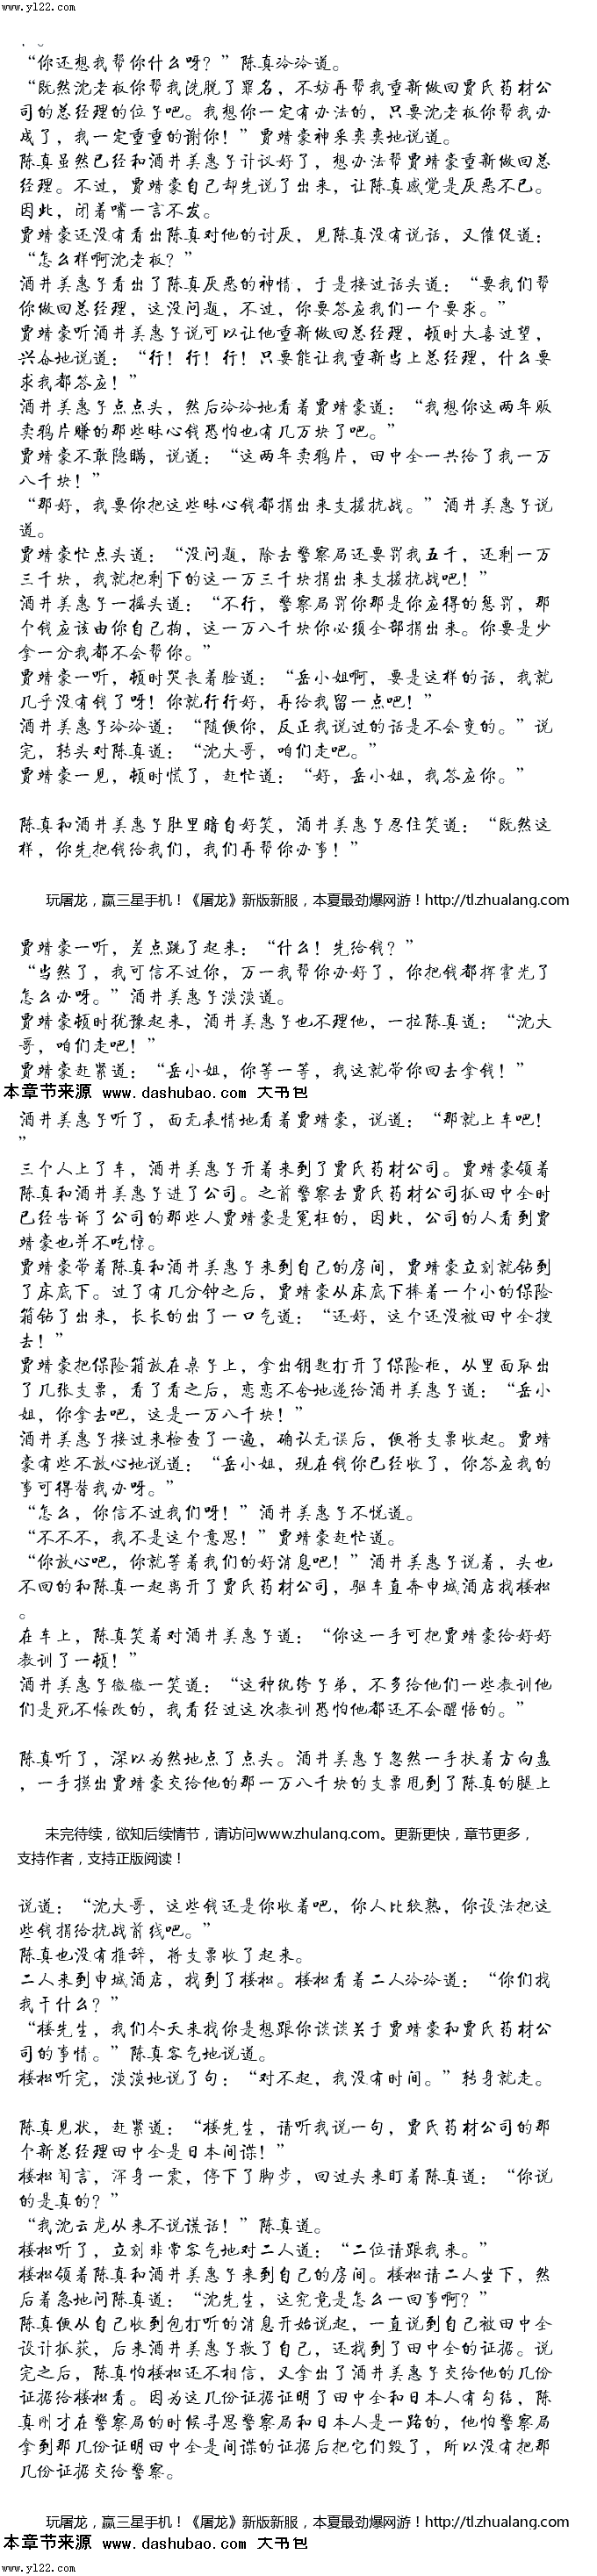 www.yl22.com
“你还想我帮你什么呀？”陈真冷冷道。
“既然沈老板你帮我洗脱了罪名，不妨再帮我重新做回贾氏药材公
司的总经理的位子吧。我想你一定有办法的，只要沈老板你帮我办
成了，我一定重重的谢你！”贾靖豪神采奕奕地说道。
陈真虽然已经和酒井美惠子计议好了，想办法帮贾靖豪重新做回总
经理。不过，贾靖豪自己却先说了出来，让陈真感觉是厌恶不已。
因此，闭着嘴一言不发。
贾靖豪还没有看出陈真对他的讨厌，见陈真没有说话，又催促道：
“怎么样啊沈老板？”
酒井美惠子看出了陈真厌恶的神情，于是接过话头道：“要我们帮
你做回总经理，这没问题，不过，你要答应我们一个要求。”
贾靖豪听酒井美惠子说可以让他重新做回总经理，顿时大喜过望，
兴奋地说道：“行！行！行！只要能让我重新当上总经理，什么要
求我都答应！”
酒井美惠子点点头，然后冷冷地看着贾靖豪道：“我想你这两年贩
卖鸦片赚的那些昧心钱恐怕也有几万块了吧。”
贾靖豪不敢隐瞒，说道：“这两年卖鸦片，田中全一共给了我一万
八千块！”
“那好，我要你把这些昧心钱都捐出来支援抗战。”酒井美惠子说
道。
贾靖豪忙点头道：“没问题，除去警察局还要罚我五千，还剩一万
三千块，我就把剩下的这一万三千块捐出来支援抗战吧！”
酒井美惠子一摇头道：“不行，警察局罚你那是你应得的惩罚，那
个钱应该由你自己掏，这一万八千块你必须全部捐出来。你要是少
拿一分我都不会帮你。”
贾靖豪一听，顿时哭丧着脸道：“岳小姐啊，要是这样的话，我就
几乎没有钱了呀！你就行行好，再给我留一点吧！”
酒井美惠子冷冷道：“随便你，反正我说过的话是不会变的。”说
完，转头对陈真道：“沈大哥，咱们走吧。”
贾靖豪一见，顿时慌了，赶忙道：“好，岳小姐，我答应你。”
陈真和酒井美惠子肚里暗自好笑，酒井美惠子忍住笑道：“既然这
样，你先把钱给我们，我们再帮你办事！”
玩屠龙，赢三星手机！《屠龙》新版新服，本夏最劲爆网游！http://tl.zhualang.com
贾靖豪一听，差点跳了起来：“什么！先给钱？”
“当然了，我可信不过你，万一我帮你办好了，你把钱都挥霍光了
怎么办呀。”酒井美惠子淡淡道。
贾靖豪顿时犹豫起来，酒井美惠子也不理他，一拉陈真道：“沈大
哥，咱们走吧！”
贾靖豪赶紧道：“岳小姐，你等一等，我这就带你回去拿钱！”
本章节来源 www.dashubao.com 大书包
酒井美惠子听了，面无表情地看着贾靖豪，说道：“那就上车吧！
”
三个人上了车，酒井美惠子开着来到了贾氏药材公司。贾靖豪领着
陈真和酒井美惠子进了公司。之前警察去贾氏药材公司抓田中全时
已经告诉了公司的那些人贾靖豪是冤枉的，因此，公司的人看到贾
靖豪也并不吃惊。
贾靖豪带着陈真和酒井美惠子来到自己的房间，贾靖豪立刻就钻到
了床底下。过了有几分钟之后，贾靖豪从床底下捧着一个小的保险
箱钻了出来，长长的出了一口气道：“还好，这个还没被田中全搜
去！”
贾靖豪把保险箱放在桌子上，拿出钥匙打开了保险柜，从里面取出
了几张支票，看了看之后，恋恋不舍地递给酒井美惠子道：“岳小
姐，你拿去吧，这是一万八千块！”
酒井美惠子接过来检查了一遍，确认无误后，便将支票收起。贾靖
豪有些不放心地说道：“岳小姐，现在钱你已经收了，你答应我的
事可得替我办呀。”
“怎么，你信不过我们呀！”酒井美惠子不悦道。
“不不不，我不是这个意思！”贾靖豪赶忙道。
“你放心吧，你就等着我们的好消息吧！”酒井美惠子说着，头也
不回的和陈真一起离开了贾氏药材公司，驱车直奔申城酒店找楼松
。
在车上，陈真笑着对酒井美惠子道：“你这一手可把贾靖豪给好好
教训了一顿！”
酒井美惠子微微一笑道：“这种纨绔子弟，不多给他们一些教训他
们是死不悔改的，我看经过这次教训恐怕他都还不会醒悟的。”
陈真听了，深以为然地点了点头。酒井美惠子忽然一手扶着方向盘
，一手摸出贾靖豪交给他的那一万八千块的支票甩到了陈真的腿上
未完待续，欲知后续情节，请访问www.zhulang.com。更新更快，章节更多，
支持作者，支持正版阅读！
说道：“沈大哥，这些钱还是你收着吧，你人比较熟，你设法把这
些钱捐给抗战前线吧。”
陈真也没有推辞，将支票收了起来。
二人来到申城酒店，找到了楼松。楼松看着二人冷冷道：“你们找
我干什么？”
“楼先生，我们今天来找你是想跟你谈谈关于贾靖豪和贾氏药材公
司的事情。”陈真客气地说道。
楼松听完，淡淡地说了句：“对不起，我没有时间。”转身就走。
陈真见状，赶紧道：“楼先生，请听我说一句，贾氏药材公司的那
个新总经理田中全是日本间谍！”
楼松闻言，浑身一震，停下了脚步，回过头来盯着陈真道：“你说
的是真的？”
“我沈云龙从来不说谎话！”陈真道。
楼松听了，立刻非常客气地对二人道：“二位请跟我来。”
楼松领着陈真和酒井美惠子来到自己的房间。楼松请二人坐下，然
后着急地问陈真道：“沈先生，这究竟是怎么一回事啊？”
陈真便从自己收到包打听的消息开始说起，一直说到自己被田中全
设计抓获，后来酒井美惠子救了自己，还找到了田中全的证据。说
完之后，陈真怕楼松还不相信，又拿出了酒井美惠子交给他的几份
证据给楼松看。因为这几份证据证明了田中全和日本人有勾结，陈
真刚才在警察局的时候寻思警察局和日本人是一路的，他怕警察局
拿到那几份证明田中全是间谍的证据后把它们毁了，所以没有把那
几份证据交给警察。
玩屠龙，赢三星手机！《屠龙》新版新服，本夏最劲爆网游！http://tl.zhualang.com
本章节来源 www.dashubao.com 大书包
www.yl22.com